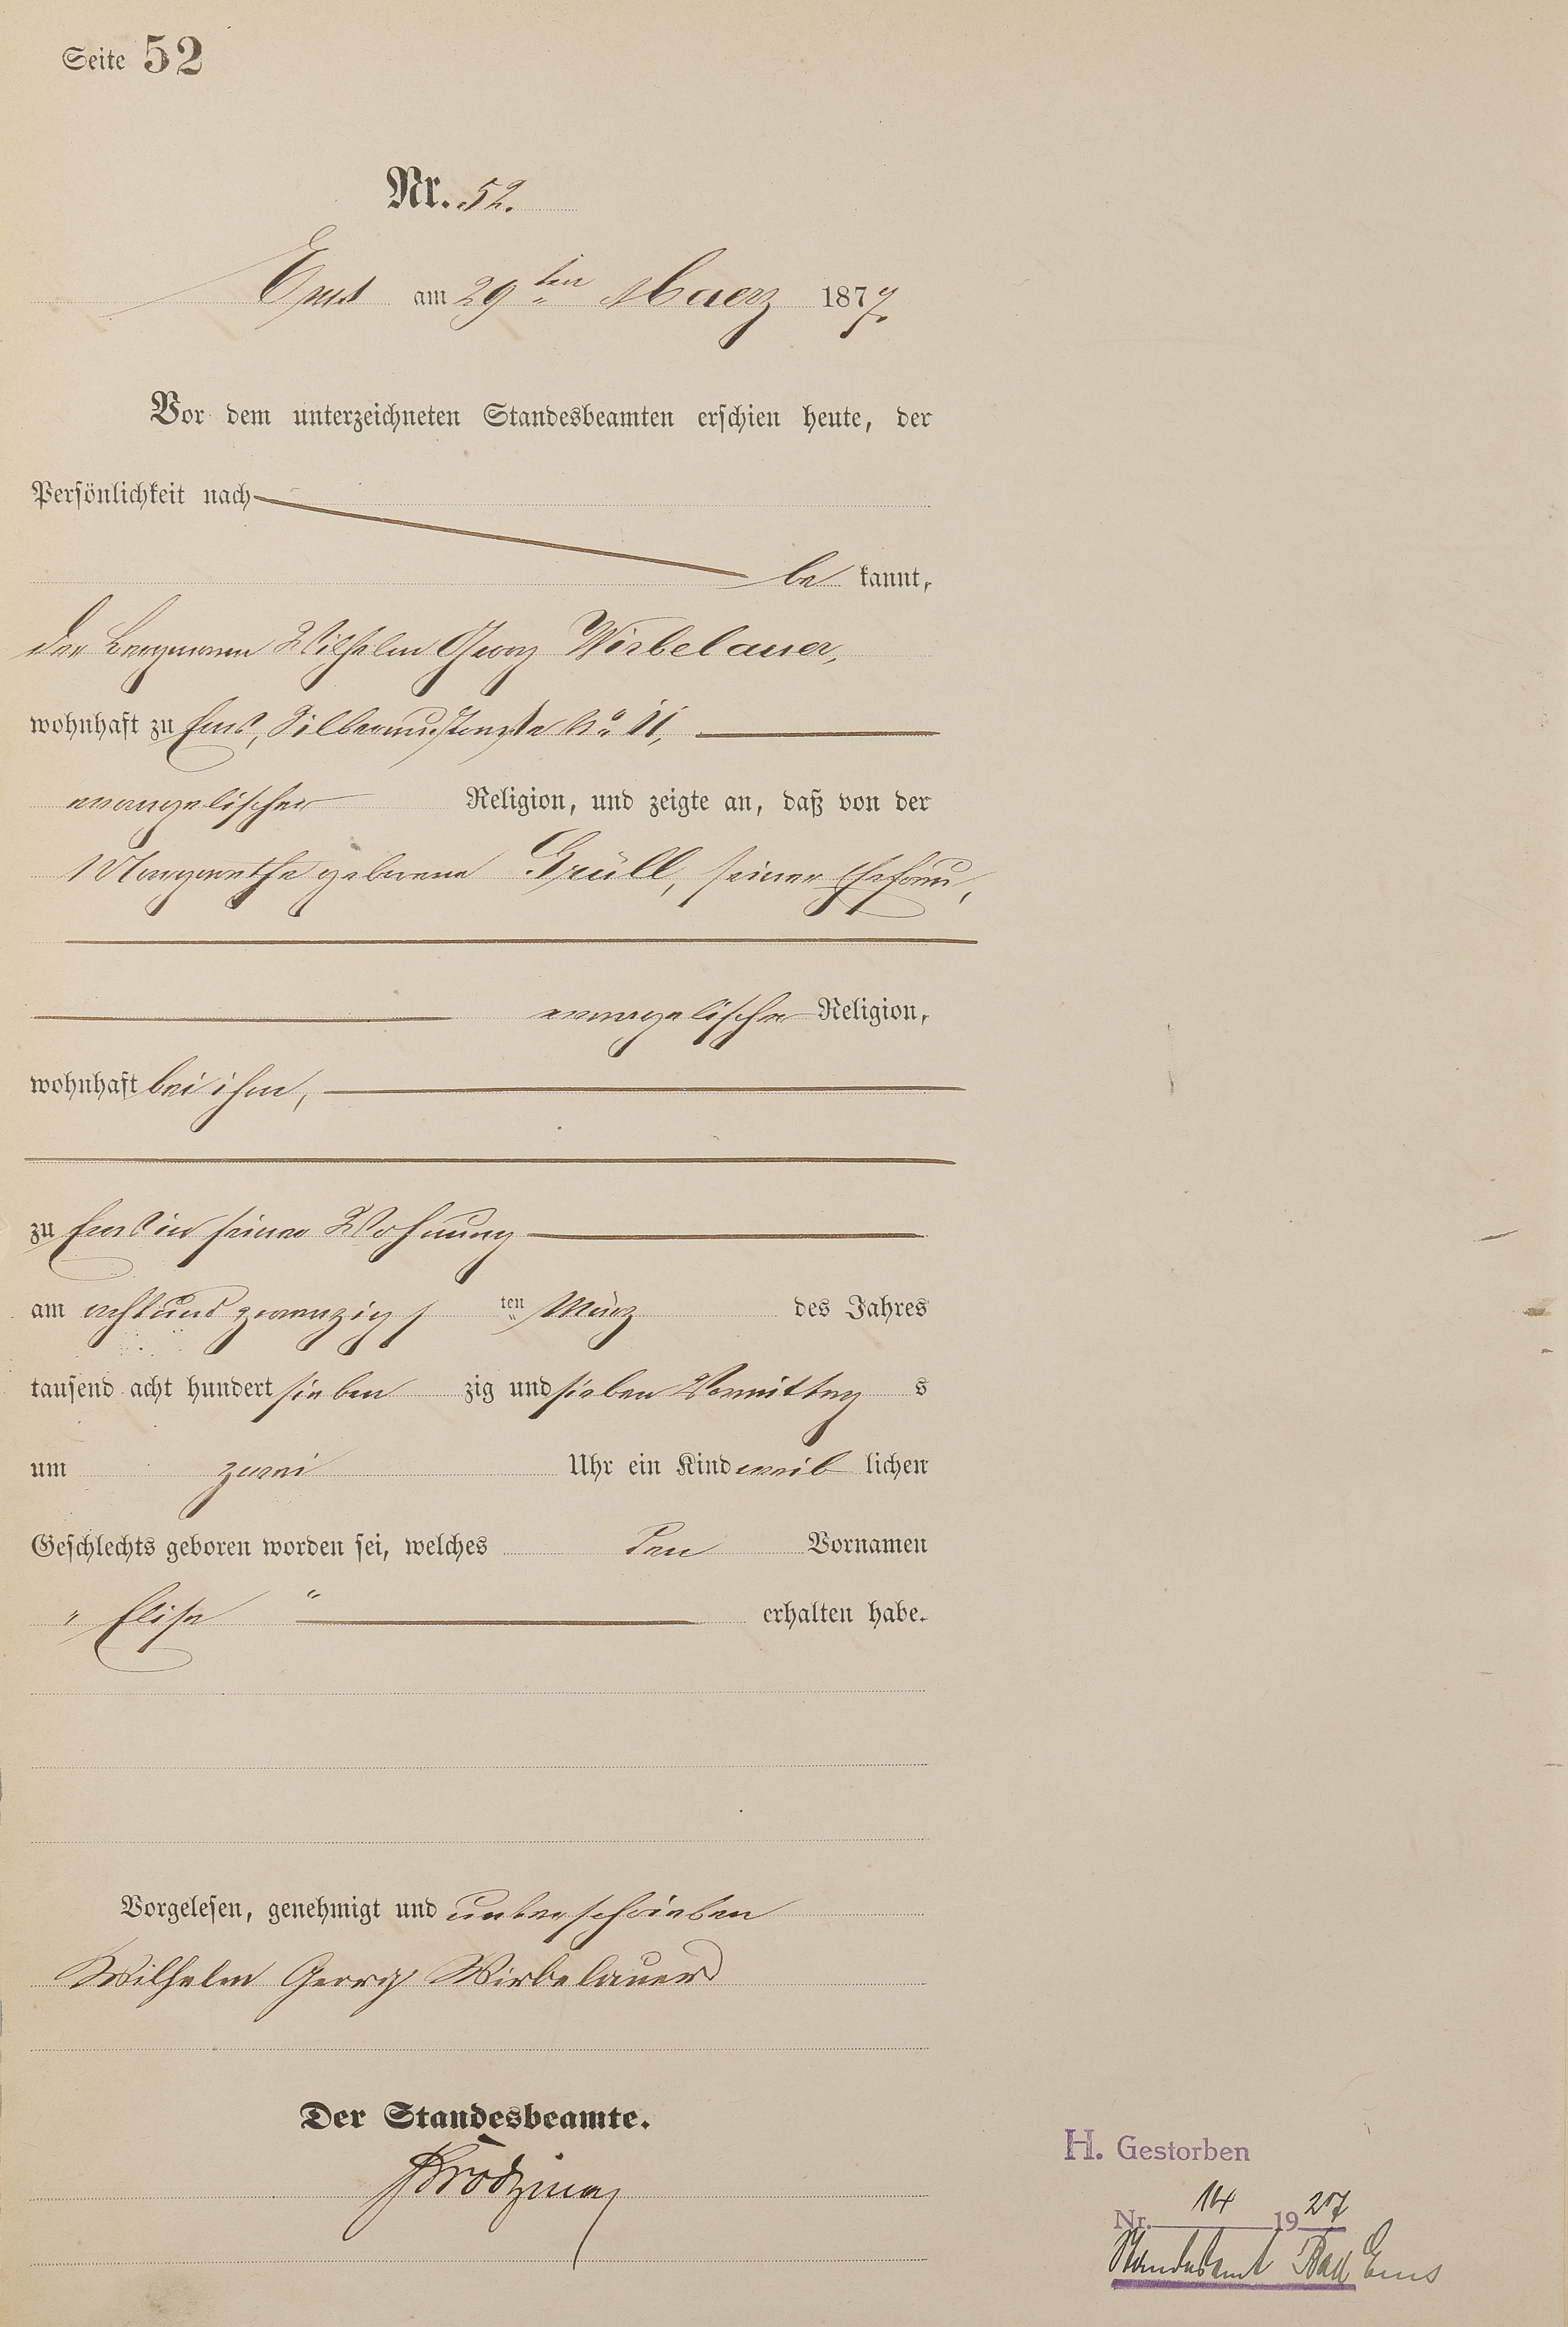 Seite 52
Nr. 52.
Ems am 29ten Maerz 1877.
Vor dem unterzeichneten Standesbeamten erschien heute, der
Persönlichkeit nach
be kannt,
der Bergmann Wilhelm Georg Wirbelauer,
wohnhaft zu Ems, No 11,
evangelischer Religion, und zeigte an, daß von der
Margarethe geborene Grüll, seiner Ehefrau,
evangelischer Religion,
wohnhaft bei ihm,
zu Ems in seiner Wohnung
am achtundzwanzigs ten März des Jahres
tausend acht hundert sieben zig und sieben Vormittag s
um zwei Uhr ein Kind weib lichen
Geschlechts geboren worden sei, welches den Vornamen
" Elise " erhalten habe.
Vorgelesen, genehmigt und unterschrieben
Wilhelm Georg Wirbelauer
Der Standesbeamte.
H. Gestorben
Nr. 14 1927
Standesamt Bad Ems